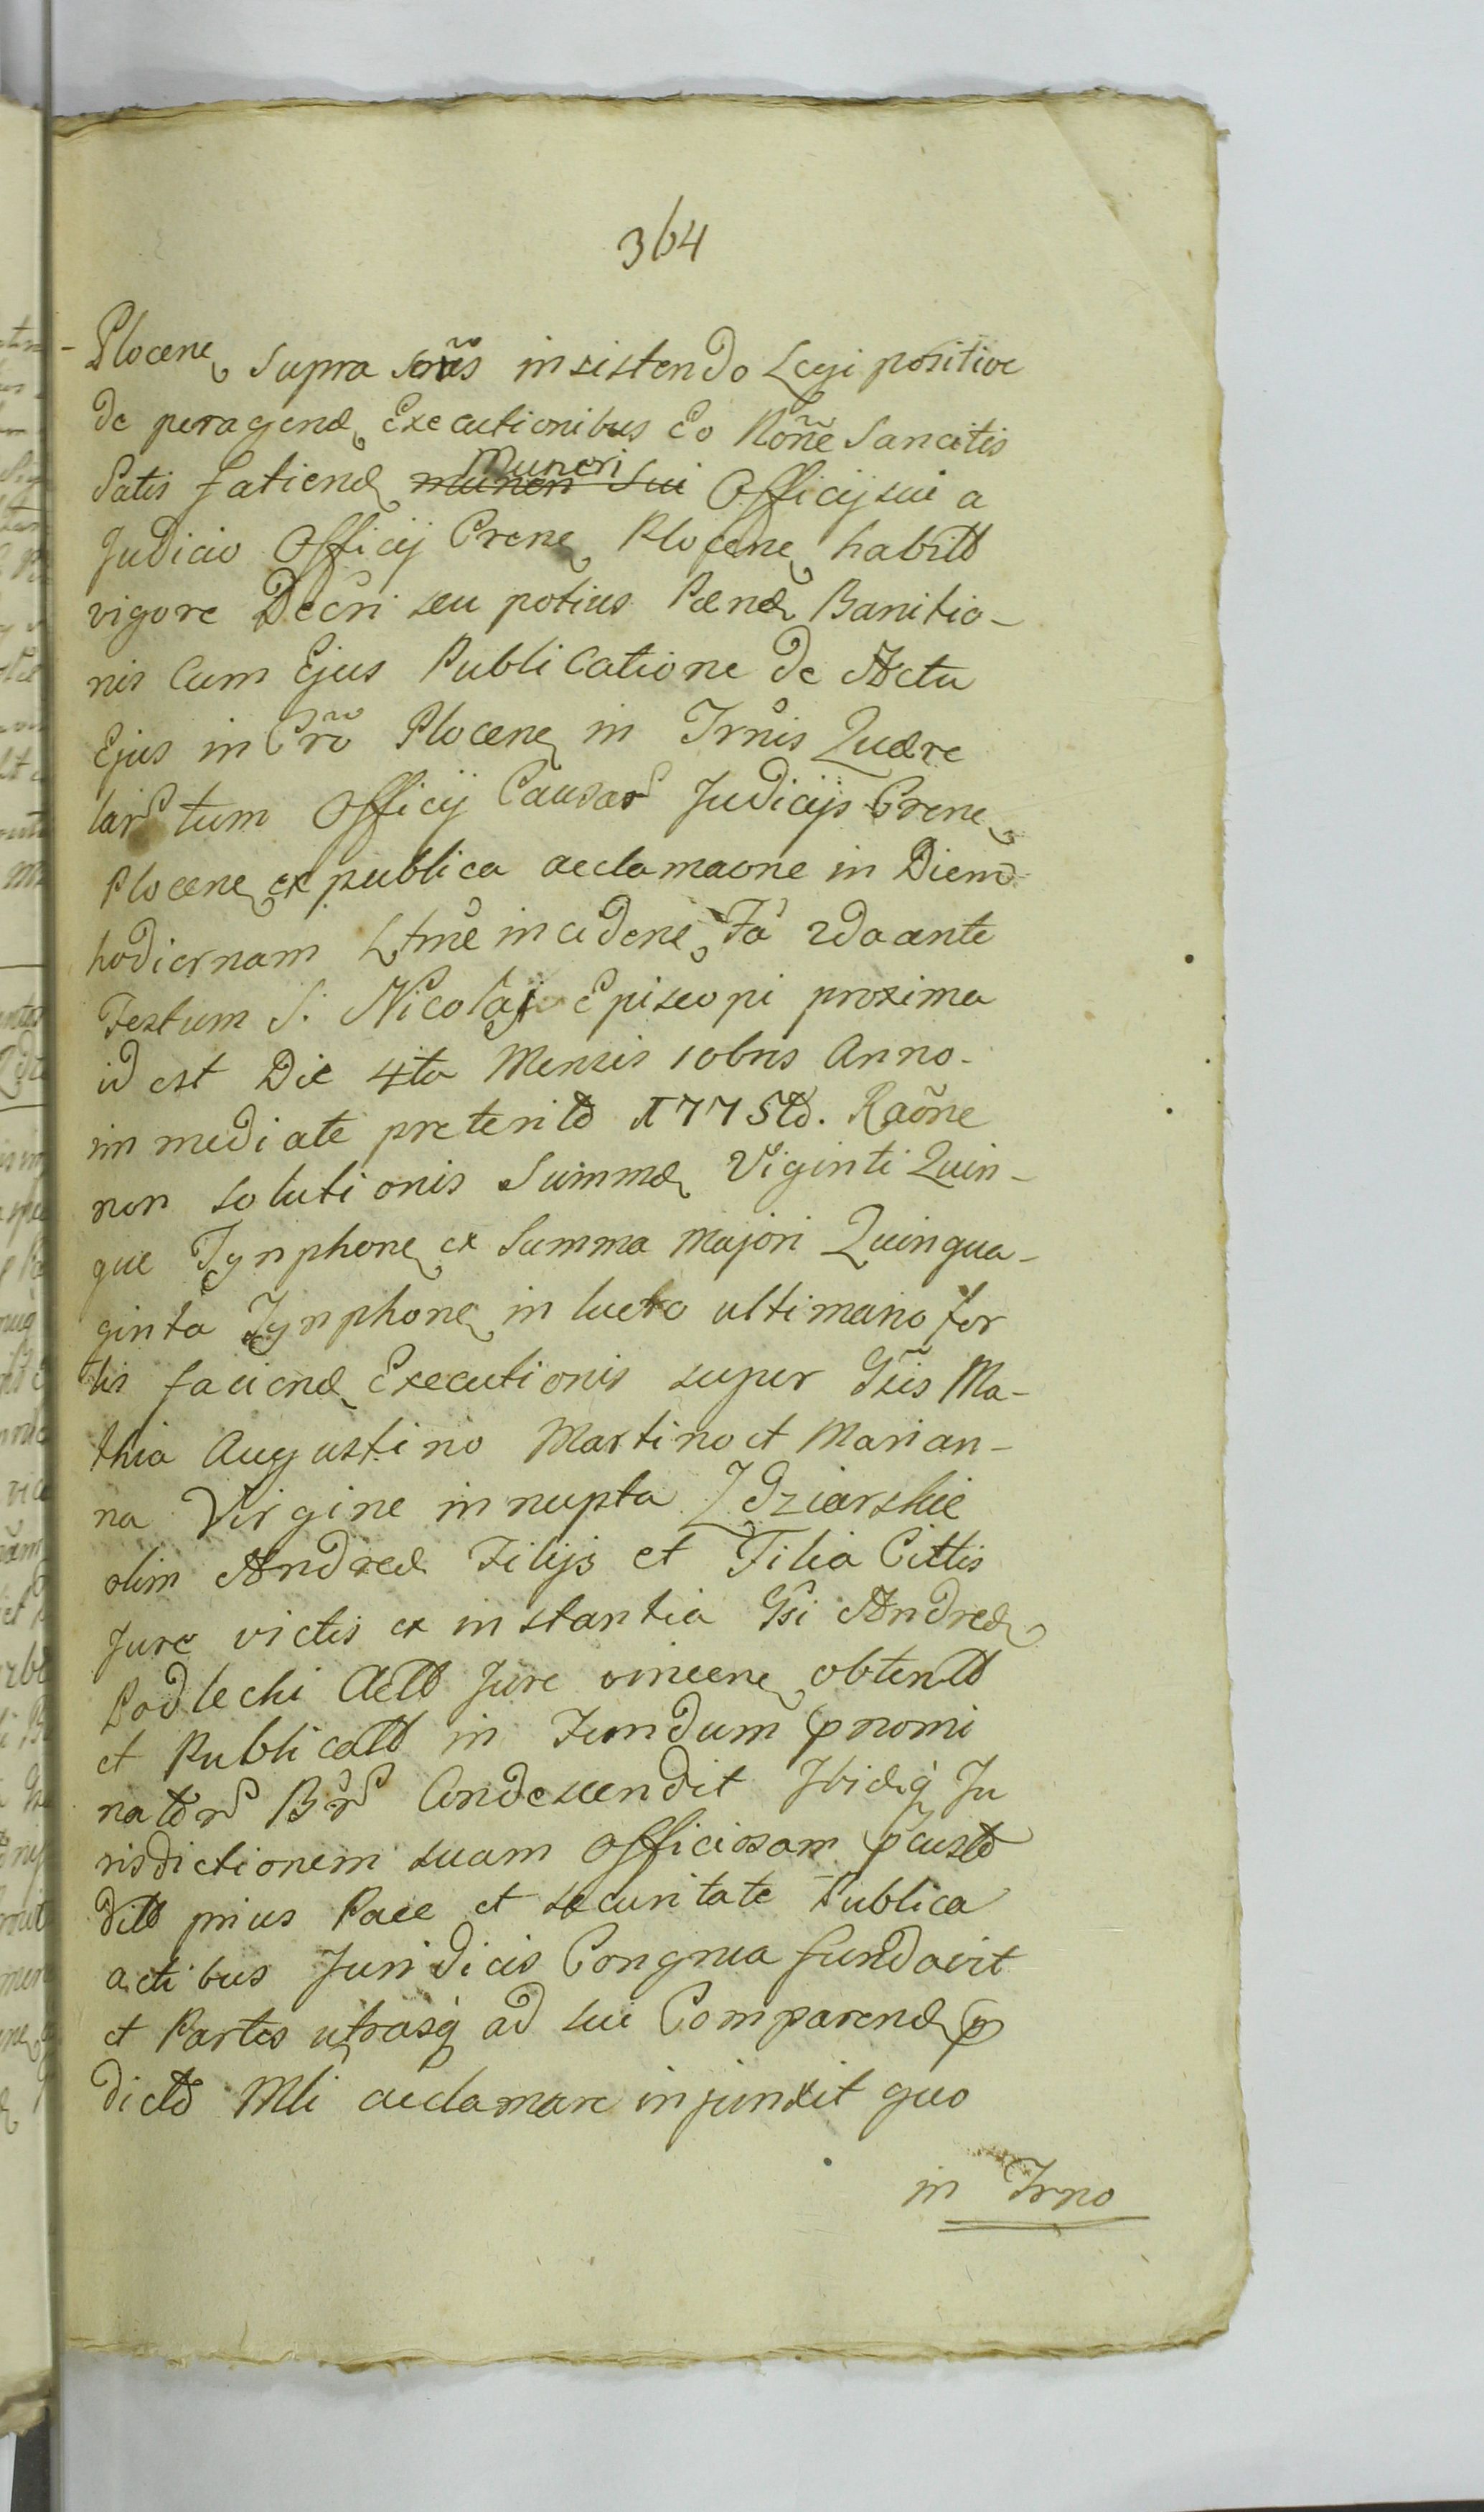 364
Plocene supra scrīs insistendo Legi positive
de peragend Executionibus Eo Noñe Sancitis
Satis fatiend muneri sui Muneri Officij sui a
Judicio Officij Crene Plocene habitt
vigore Decri seu potius Pænæ Banitio-
nis Cum Ejus Publicatione de Actu
Ejus in Cro Plocene in Trnis Quære
lar tum Officij Causar Judicijs Crene
Plocene ex publica acclamaone in Diem
hodiernam Ltme incidene Fa 2da ante
Festum S. Nicolaji Episcopi proxima
id est Die 4ta Mensis 10bris Anno
immediate preterito 1775to. Raõne
non solutionis Summæ Viginti Quin-
que Tynphone ex Summa majori Quinqua-
ginta Tynphone in lucro ultimario for
tis faciend Executionis super Gsis Ma-
thia Augustino Martino et Marian-
na Virgine innupta Zdziarskie
olim Andreæ Filijs et Filia Cittis
Jure victis ex instantia Gsi Andreæ
Podlechi Actt Jure vincene obtentt
et Publicatt in Fundum pnomi
nator Br Condescendit Ibidq Ju
risdictionem suam officiosam pcusto
ditt prius Pace et securitate Publica
actibus Juridicis Congrua fundavit
et Partes utrasq ad sui Comparend p
dicto Mli acclamare injunxit quo
in Trno